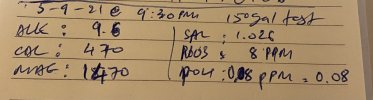 5-9-21 @ 9:30 PM 150gal test
ALK: 9.6 | SAL: 1.026
CAL: 470 | : 8 PPM
MAG: 1470 | : 0.08 PPM = 0.08